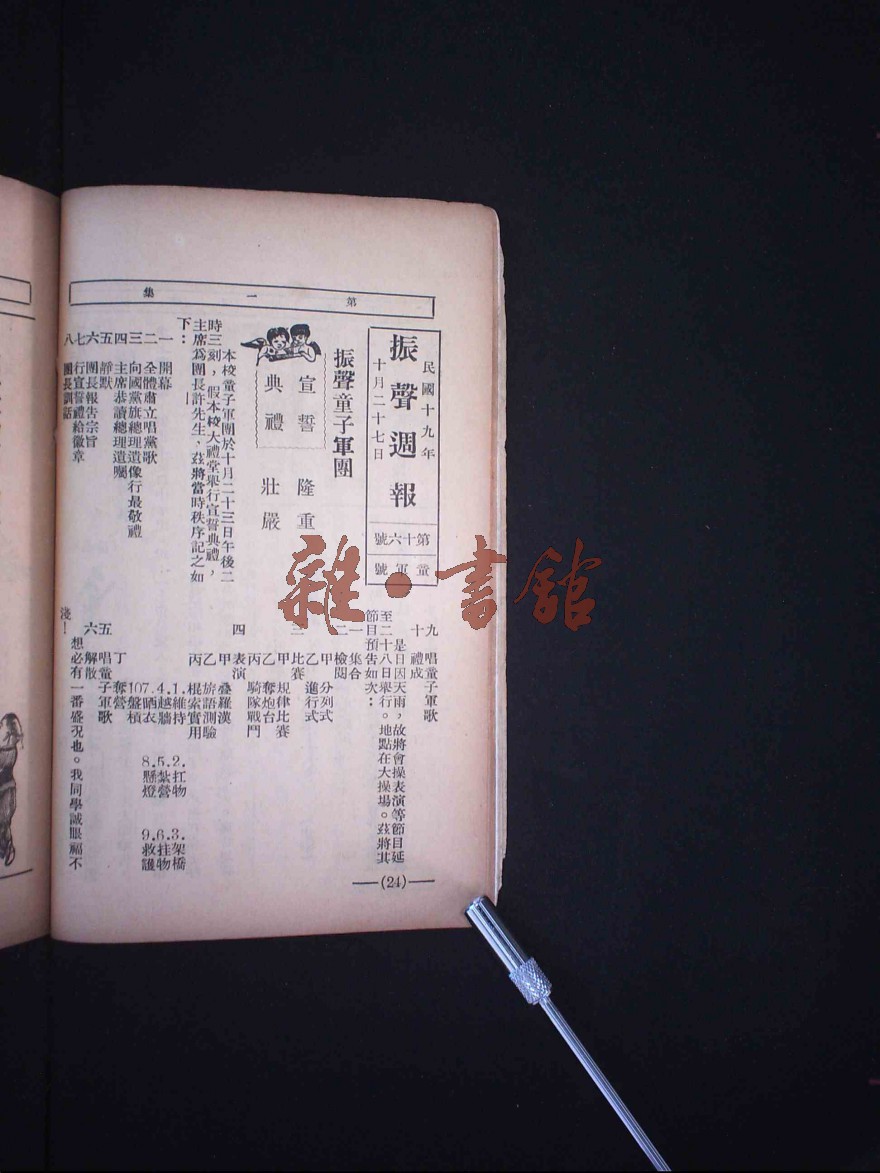 第一集
民國十九年
振聲週報
十月二十七日
第十六號
童軍號
振聲童子軍團
宣誓 隆重
典禮 壯嚴
本校童子軍團於十月二十三日午後二
時三刻，假本校大禮堂舉行宣誓典禮，
主席為團長許先生，茲將當時秩序記之如
下：
一 開幕
二 全體肅立唱黨歌
三 向國黨旗總理遺像行最敬禮
四 主席恭讀總理遺囑
五 靜默
六 團長報告宗旨
七 行宣誓禮給徽章
八 團長訓話
九 唱童子軍歌
十 禮成
是日因天雨，故將會操表演等節目延
至二十八日舉行。地點在大操場。茲將其
節目預告如次：
一 集合
二 檢閱
甲 分列式
乙 進行式
三 比賽
甲 規律比賽
乙 奪炮台
丙 騎隊戰鬥
四 表演
甲 疊羅漢
乙 旂語測驗
丙 棍索實用
1.維持 2.扛物 3.架橋
4.越牆 5.紮營 6.挂物
7.晒衣 8.懸燈 9.救護
10盤槓
丁 奪營
五 唱童子軍歌
六 解散
想必有一番盛況也。我同學誠眼福不
淺！
(24)
雜·書館